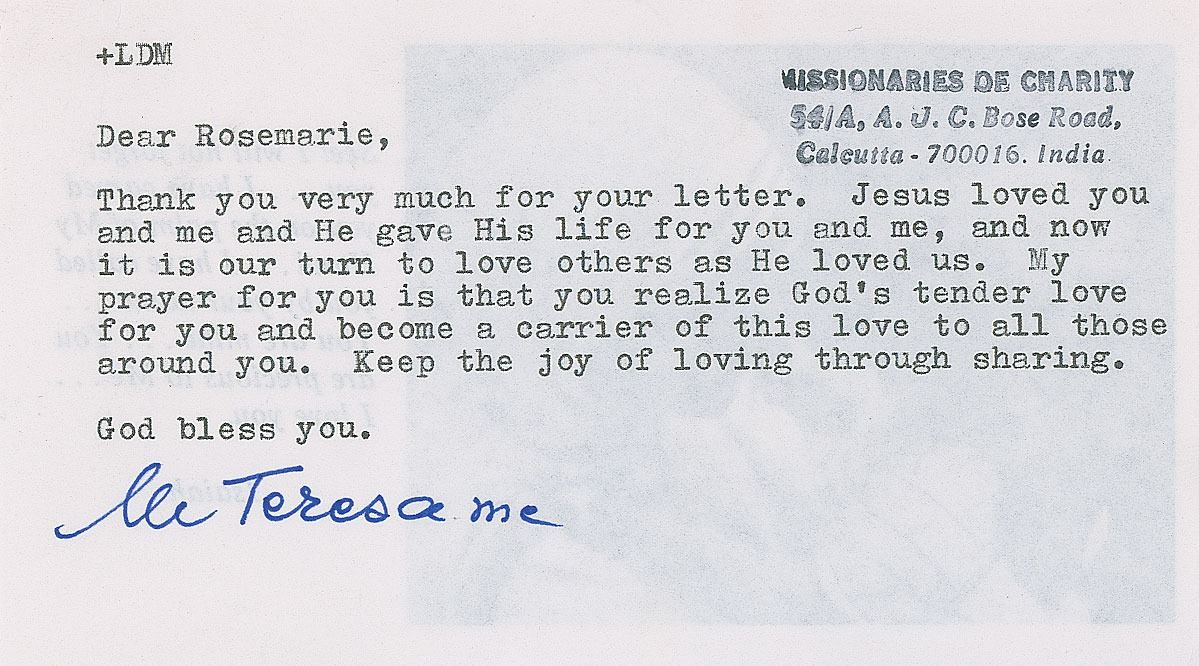 +LDM
MISSIONARIES DE CHARITY
54/A, A. J. C. Bose Road,
Calcutta - 700016. India.
Dear Rosemarie,
Thank you very much for your letter. Jesus loved you
and me and He gave His life for you and me, and now
it is our turn to love others as He loved us. My
prayer for you is that you realize God's tender love
for you and become a carrier of this love to all those
around you. Keep the joy of loving through sharing.
God bless you.
Teresa mc